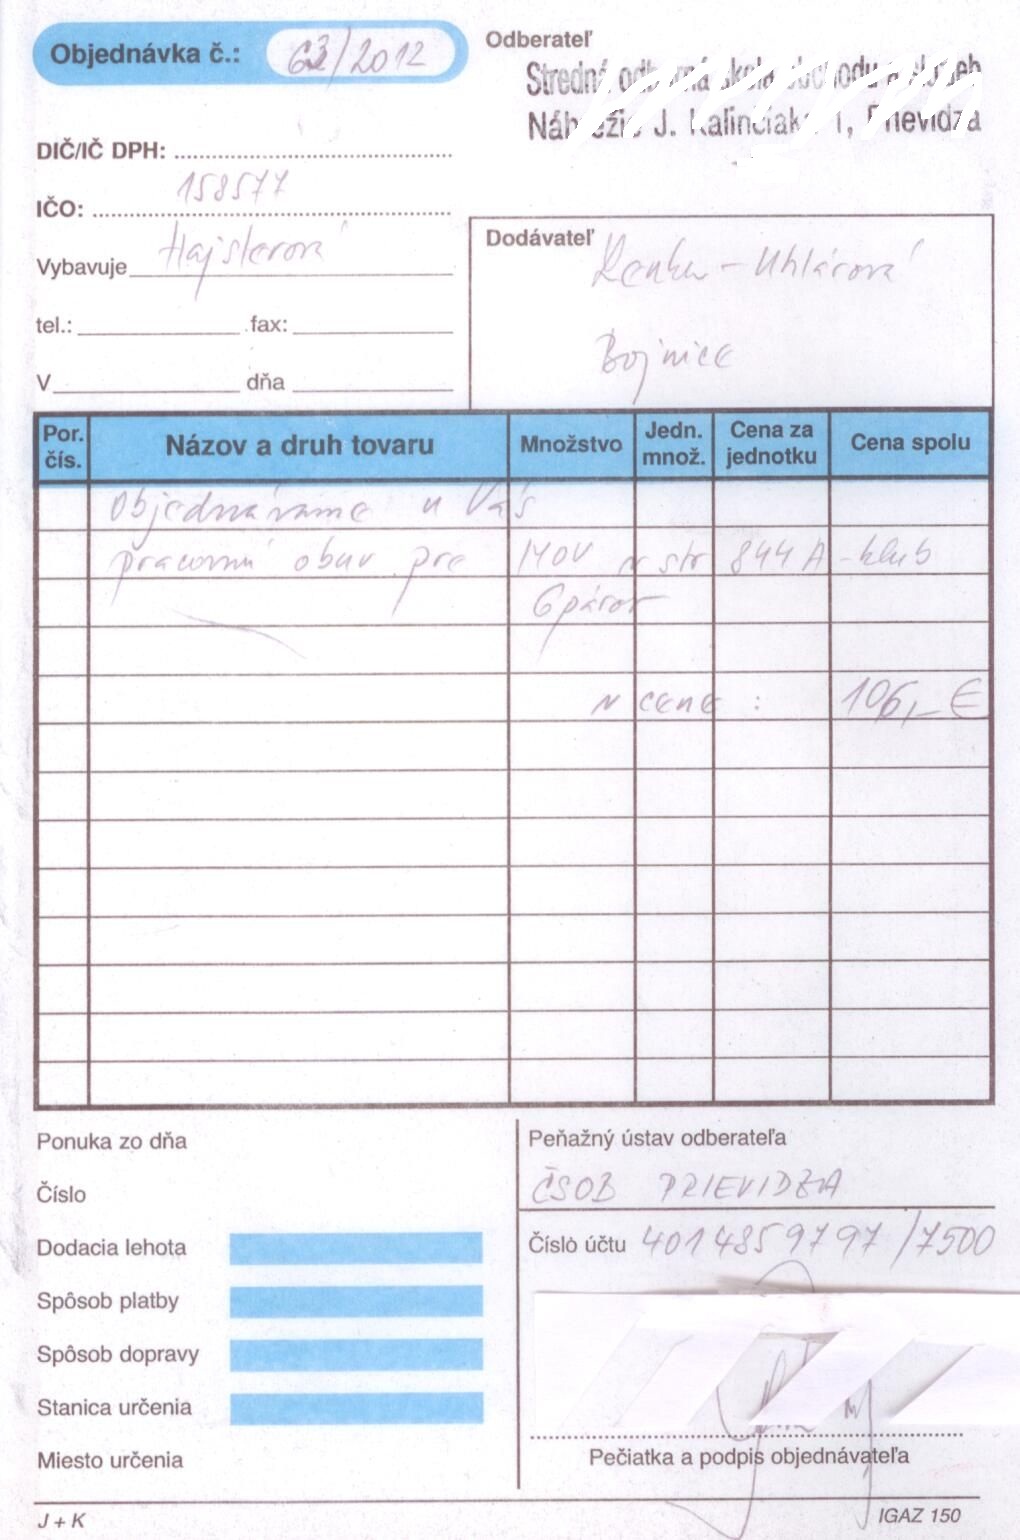 Objednávka č.: 63/2012
Odberateľ
Stredná odborná škola obchodu a služieb
Nábrežie J. Kalinčiaka 1, Prievidza
DIČ/IČ DPH:
IČO: 158577
Vybavuje Hajsterová
tel.: fax:
V dňa
Dodávateľ
Lenka - Uhlárová
Bojnice
Por. čís. Názov a druh tovaru Množstvo Jedn. množ. Cena za jednotku Cena spolu
Objednávame u Vás
pracovnú obuv pre MOV v str 844 A - klub
6 párov
v cene : 106,- €
Ponuka zo dňa
Číslo
Dodacia lehota
Spôsob platby
Spôsob dopravy
Stanica určenia
Miesto určenia
Peňažný ústav odberateľa
ČSOB PRIEVIDZA
Číslo účtu 4014859797/7500
Pečiatka a podpis objednávateľa
J + K
IGAZ 150